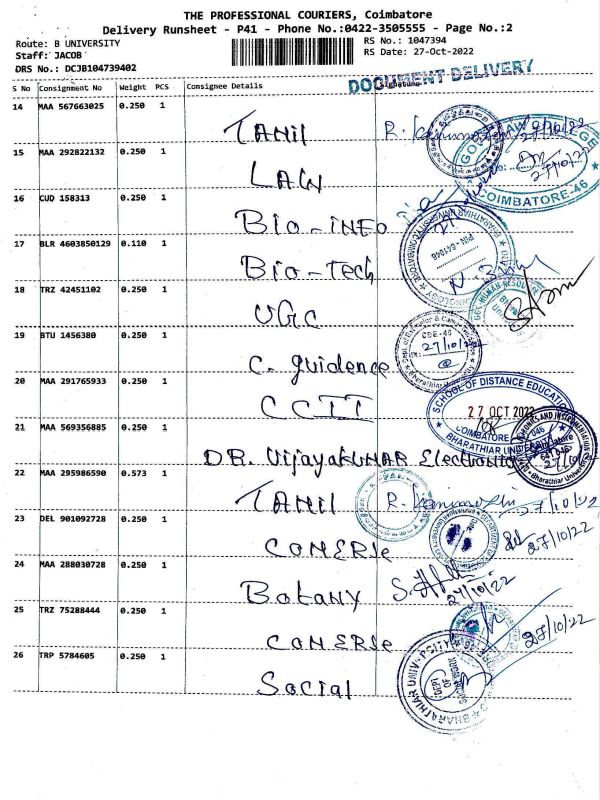 THE PROFESSIONAL COURIERS, Coimbatore
Delivery Runsheet - P41 - Phone No.:0422-3505555 - Page No.:2
Route: B UNIVERSITY
RS No.: 1047394
Staff: JACOB
RS Date: 27-Oct-2022
DRS No.: DCJB104739402
DOCUMENT DELIVERY
S No Consignment No Weight PCS Consignee Details Signature
14 MAA 567663025 0.250 1 TAMIL
15 MAA 292822132 0.250 1 LAW
COIMBATORE-46
16 CUD 158313 0.250 1 BIO-INFO
17 BLR 4603850129 0.110 1 BIO-Tech
PIN-641046
18 TRZ 42451102 0.250 1 UGC
19 BTU 1456380 0.250 1 C. guidence
CBE-46
27/10/22
20 MAA 291765933 0.250 1 CCII
SCHOOL OF DISTANCE EDUCATION
27 OCT 2022
COIMBATORE
BHARATHIAR UNIVERSITY
21 MAA 569356885 0.250 1 DR. VijayaKUMAR Electronic
22 MAA 295986590 0.573 1 TAMIL R. Kanimozhi 27/10/22
23 DEL 901092728 0.250 1 COMERSE 27/10/22
24 MAA 288030728 0.250 1 Botany 27/10/22
25 TRZ 75288444 0.250 1 COMERSE 27/10/22
26 TRP 5784605 0.250 1 Social